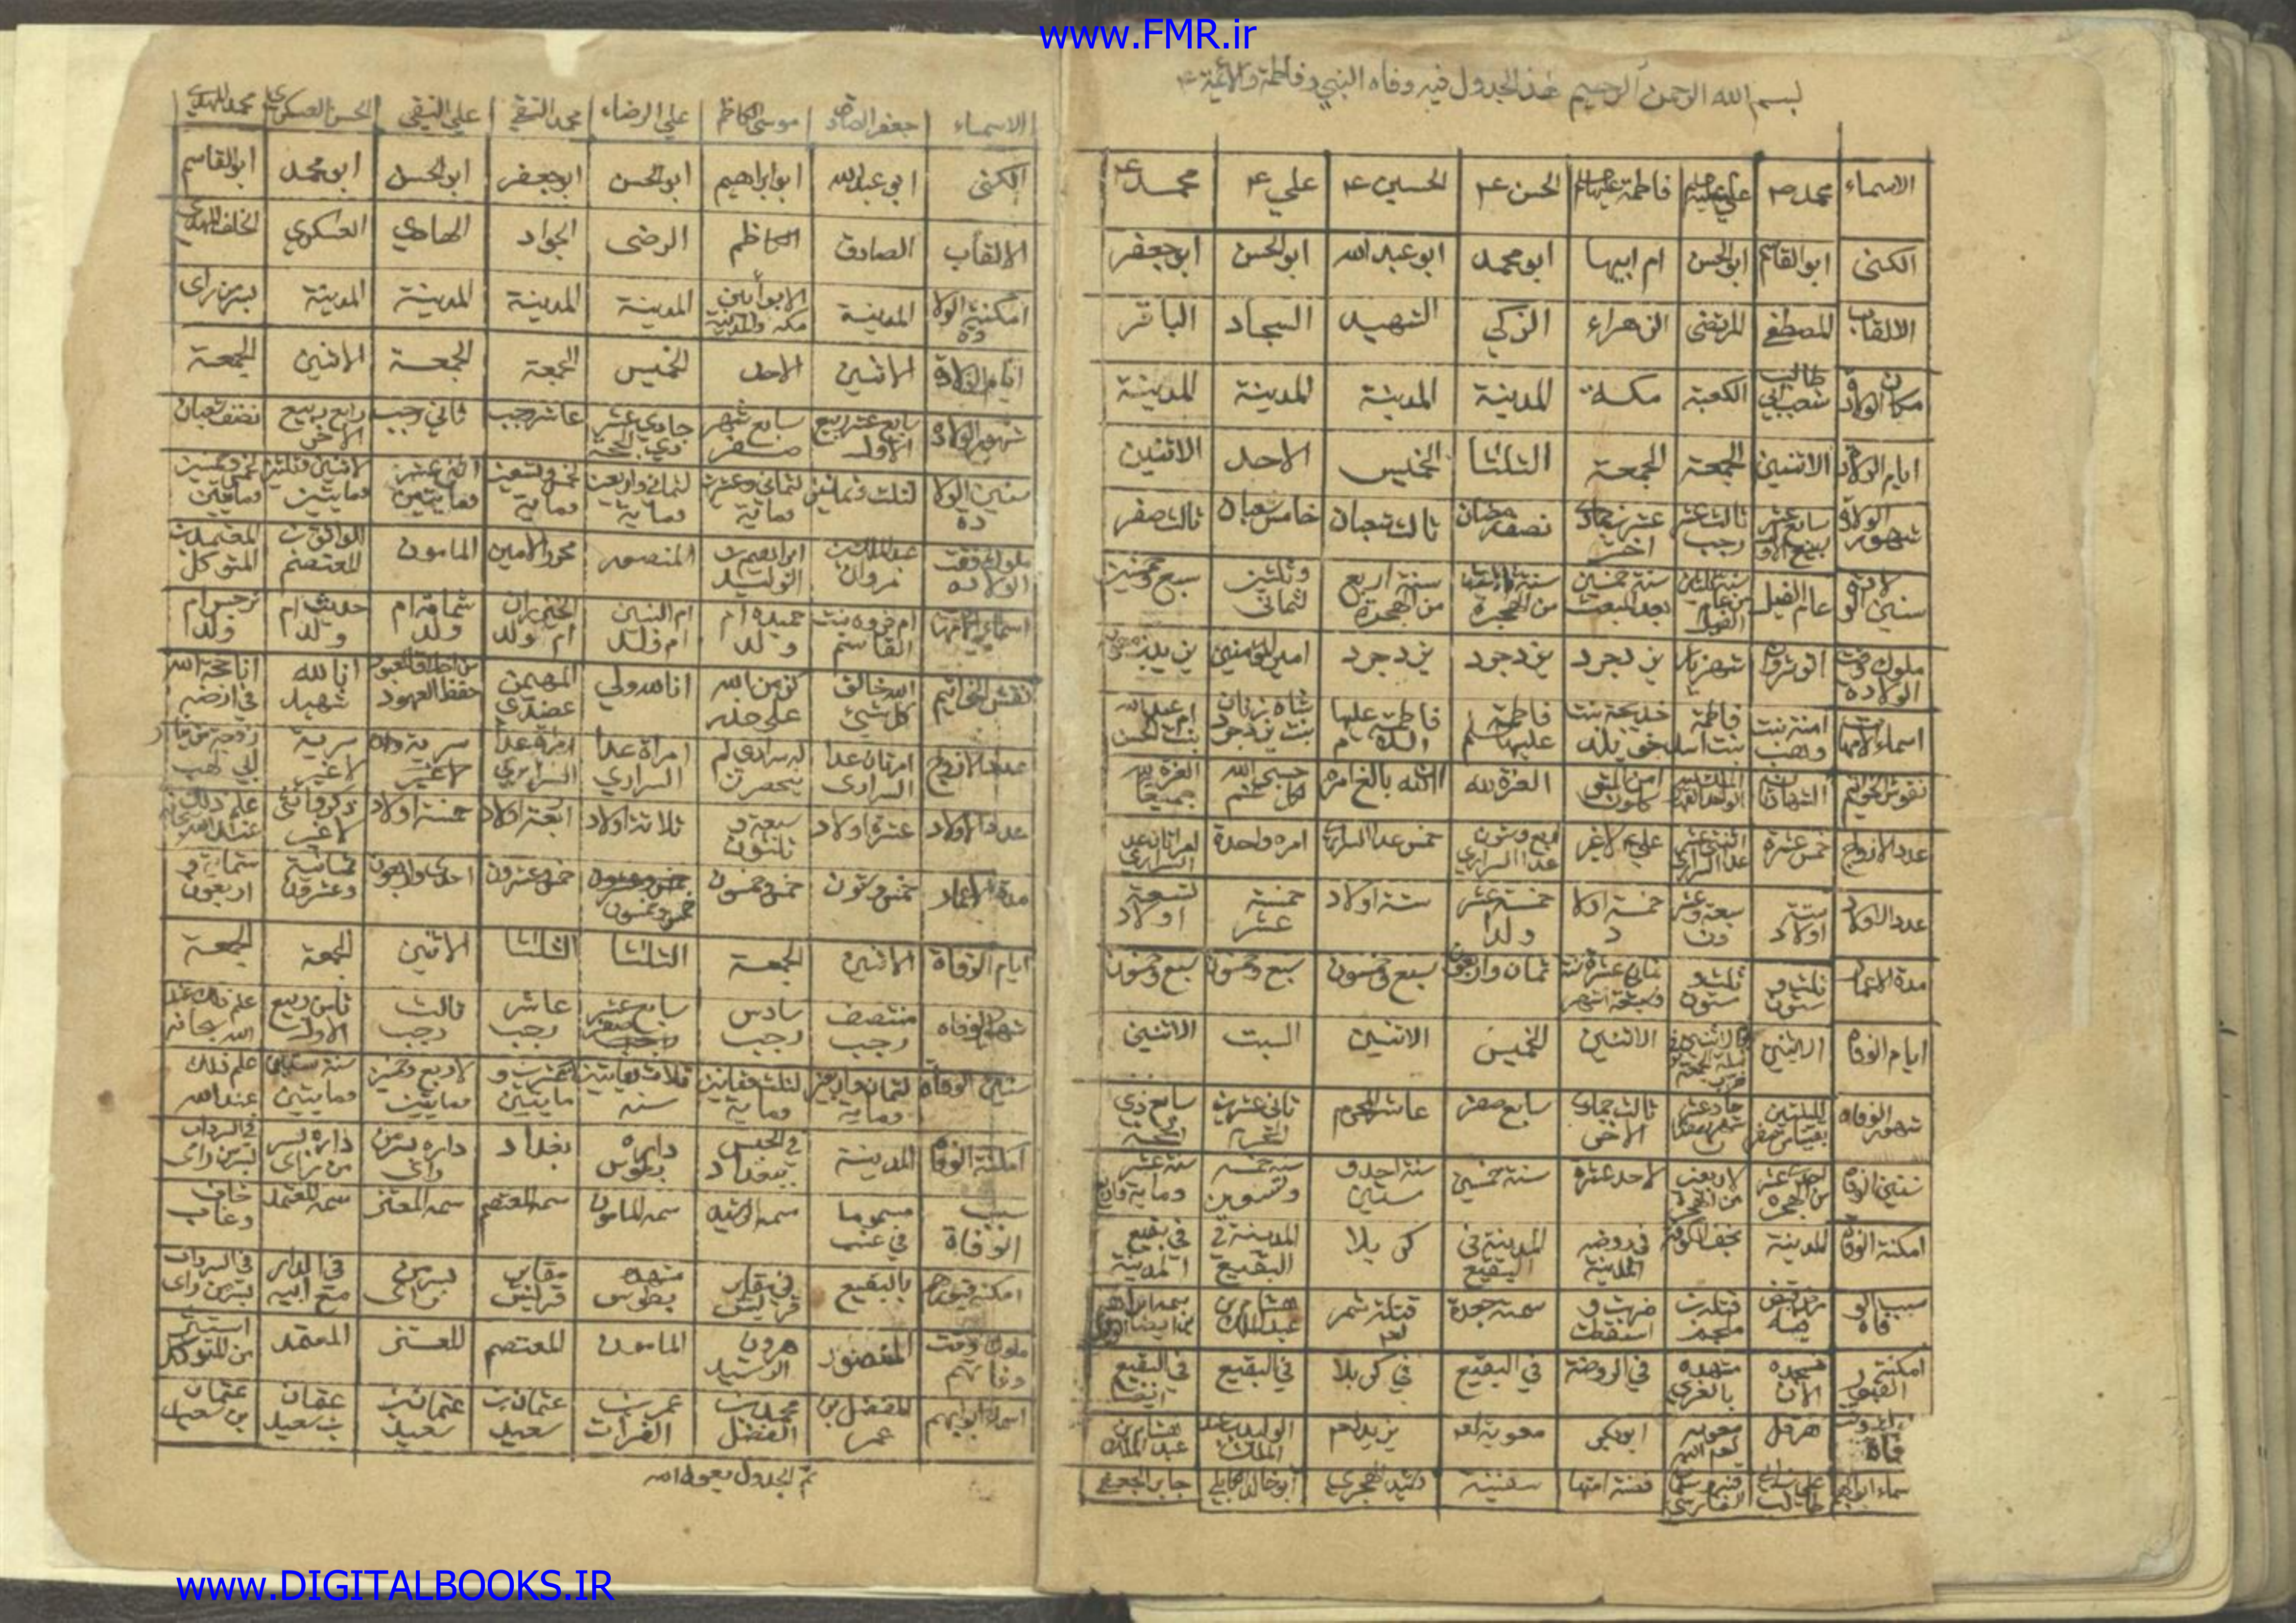 www.FMR.ir
بسم الله الرحمن الرحيم هذا الجدول فيه وفاه النبي وفاطمة والائمة ع
الاسماء محمد ص علي عليه فاطمة عليها الحسن ع الحسين ع علي ع محمد ع
الكنى ابو القاسم ابو الحسن ام ابيها ابو محمد ابو عبد الله ابو الحسن ابو جعفر
الالقاب المصطفى المرتضى الزهراء الزكي الشهيد السجاد الباقر
مكان الولادة شعب ابي طالب الكعبة مكة المدينة المدينة المدينة المدينة
ايام الولادة الاثنين الجمعة الجمعة الثلثا الخميس الاحد الاثنين
شهور الولادة سابع عشر ربيع الاو ثالث عشر رجب عشرين جمادى اخر نصف رمضان ثالث شعبان خامس شعبان ثالث صفر
سنين الولادة عام الفيل سنة ثلثين من عام الفيل سنة خمسين بعد المبعث سنة من الهجرة سنة اربع من الهجرة ثماني وثلثين سبع وخمسين
ملوك وقت الولادة انوشروان شهريار يزدجرد يزدجرد يزدجرد امير المؤمنين يزيد
اسماء الامهات امنة بنت وهب فاطمة بنت اسد خديجة بنت خويلد فاطمة عليها فاطمة عليها السلام شاه زنان بنت يزدجرد ام عبد الله بنت الحسن
نقوش الخواتيم الشهادتان امن المتوكلون العزة لله ان الله بالغ امره حسبي الله لكل غم العزة لله جميعا
عدد الازواج خمس عشرة اثنتي عشر عدا السراري علي لا غير اربع وستون عدا السراري خمس عدا السراري امره واحدة امراتان عدا السراري
عدد الاولاد ستة اولاد سبعة وعشرون خمسة اولاد خمسة عشر ولدا ستة اولاد خمسة عشر تسعة اولاد
مدة الاعمار ثلث وستون ثلث وستون ثماني عشرة سنة وسبعة اشهر ثمان واربعون سبع وخمسون سبع وخمسون سبع وخمسون
ايام الوفاة الاثنين الاثنين الخميس الاثنين السبت الاثنين
شهور الوفاة لليلتين بقيتا من صفر ثالث جمادى الاخرى سابع صفر عاشر المحرم ثاني عشر المحرم سابع ذي الحجة
سنين الوفاة لاحد عشر من الهجرة لاربعين من الهجرة لاحد عشرة سنة خمسين سنة احد وستين سنة خمسة وتسعين سنة عشر وماية
امكنة الوفاة المدينة نجف الكوفة في روضه المدينة المدينة في البقيع كربلا المدينة في البقيع في بقيع المدينة
سبب الوفاة قتله ابن ملجم ضربت واسقطت سمته جعدة قتلة شمر لعنه هشام بن عبد الملك
امكنة القبور مسجده الان مشهده بالغري في الروضة في البقيع في كربلا في البقيع في البقيع ايضا
هرقل معويه لعنه الله ابو بكر معوية لعنه يزيد لعنه الوليد بن عبد الملك هشام بن عبد الملك
سماء ابوابهم علي بن ابي طالب قنبر وسلمان الفارسي فضة امتها سفينة رشيد الهجري ابو خالد الكابلي جابر الجعفي
الاسماء جعفر الصادق موسى الكاظم علي الرضاء محمد التقي علي النقي الحسن العسكري محمد المهدي
الكنى ابي عبد الله ابو ابراهيم ابو الحسن ابو جعفر ابو الحسن ابو محمد ابو القاسم
الالقاب الصادق الكاظم الرضى الجواد الهادي العسكري الخلف المهدي
امكنة الولادة المدينة الابوا بين مكه والمدينة المدينة المدينة المدينة المدينة بسر من راى
ايام الولادة الاثنين الاحد الخميس الجمعة الجمعة الاثنين الجمعة
شهور الولادة سابع عشر ربيع الاول سابع شهر صفر حادي عشر ذي الحجة عاشر رجب ثاني رجب رابع ربيع الاخر نصف شعبان
سنين الولادة لثلث وثمانين لثماني وعشرين وماية لثماني واربعين وماية لخمس وتسعين وماية اثني عشر ومايتين لاثنين وثلثين ومايتين لخمس وخمسين ومايتين
ملوك وقت الولادة عبد الملك بن مروان ابراهيم بن الوليد المنصور محمد الامين المامون الواثق بن المعتصم المعتمد بن المتوكل
اسماء امهاتهم ام فروه بنت القاسم حميده ام ولد ام البنين ام ولد الخيزران ام ولد سمانة ام ولد حديث ام ولد نرجس ام ولد
نقش الخواتيم الله خالق كل شيئ كن من الله على حذر انا لله ولي المهيمن عضدي حفظ العهود انا لله شهيد انا حجة الله في ارضه
عدد الازواج امرتان عدا السراري له سراري لم يحصرن امراة عدا السراري امراة عدا السراري سرية لا غير سرية لا غير
عدد الاولاد عشرة اولاد سبعة وثلثون ثلاثة اولاد اربعة اولاد خمسة اولاد ذكر وانثى لا غير علم ذلك عند الله سبحانه
مدة الاعمار خمس وستون خمس وخمسون خمس وخمسون خمس وعشرون احدى واربعون ثمانية وعشرون ستماية واربعون
ايام الوفاة الاثنين الجمعة الثلثا الثلثا الاثنين الجمعة الجمعة
شهور الوفاه منتصف رجب سادس رجب سابع عشر صفر عاشر رجب ثالث رجب ثامن ربيع الاول علم ذلك عند الله سبحانه
سنين الوفاة لثمان واربعين وماية لثلث وثمانين وماية ثلاث ومايتين سنه لعشرين ومايتين لاربع وخمسين ومايتين سنة ستين ومايتين علم ذلك عند الله
امكنة الوفاة المدينة في الحبس ببغداد داره بطوس بغداد داره بسر من راى داره بسر من راى في السرداب بسر من راى
سبب الوفاة مسموما في عنب سمه الرشيد سمه المامون سمه المعتصم سمه المعتز سمه المعتمد خاف وغاب
امكنة قبورهم بالبقيع في مقابر قريش مشهده بطوس مقابر قريش بسر من راى في الدار مع ابيه في السرداب بسر من راى
ملوك وقت وفاتهم المنصور هرون الرشيد المامون المعتصم المعتز المعتمد
اسماء ابوابهم المفضل بن عمر محمد بن الفضل عمر بن الفرات عثمان بن سعيد عثمان بن سعيد عثمان بن سعيد عثمان بن سعيد
تم الجدول بعون الله
www.DIGITALBOOKS.IR